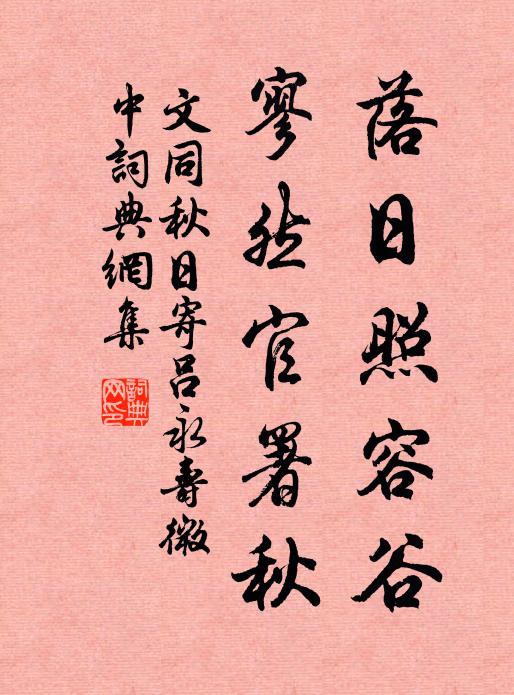 落日照容谷
寥然官署秋
文同秋日寄呂永壽微
中詞典網集
詞典
网印